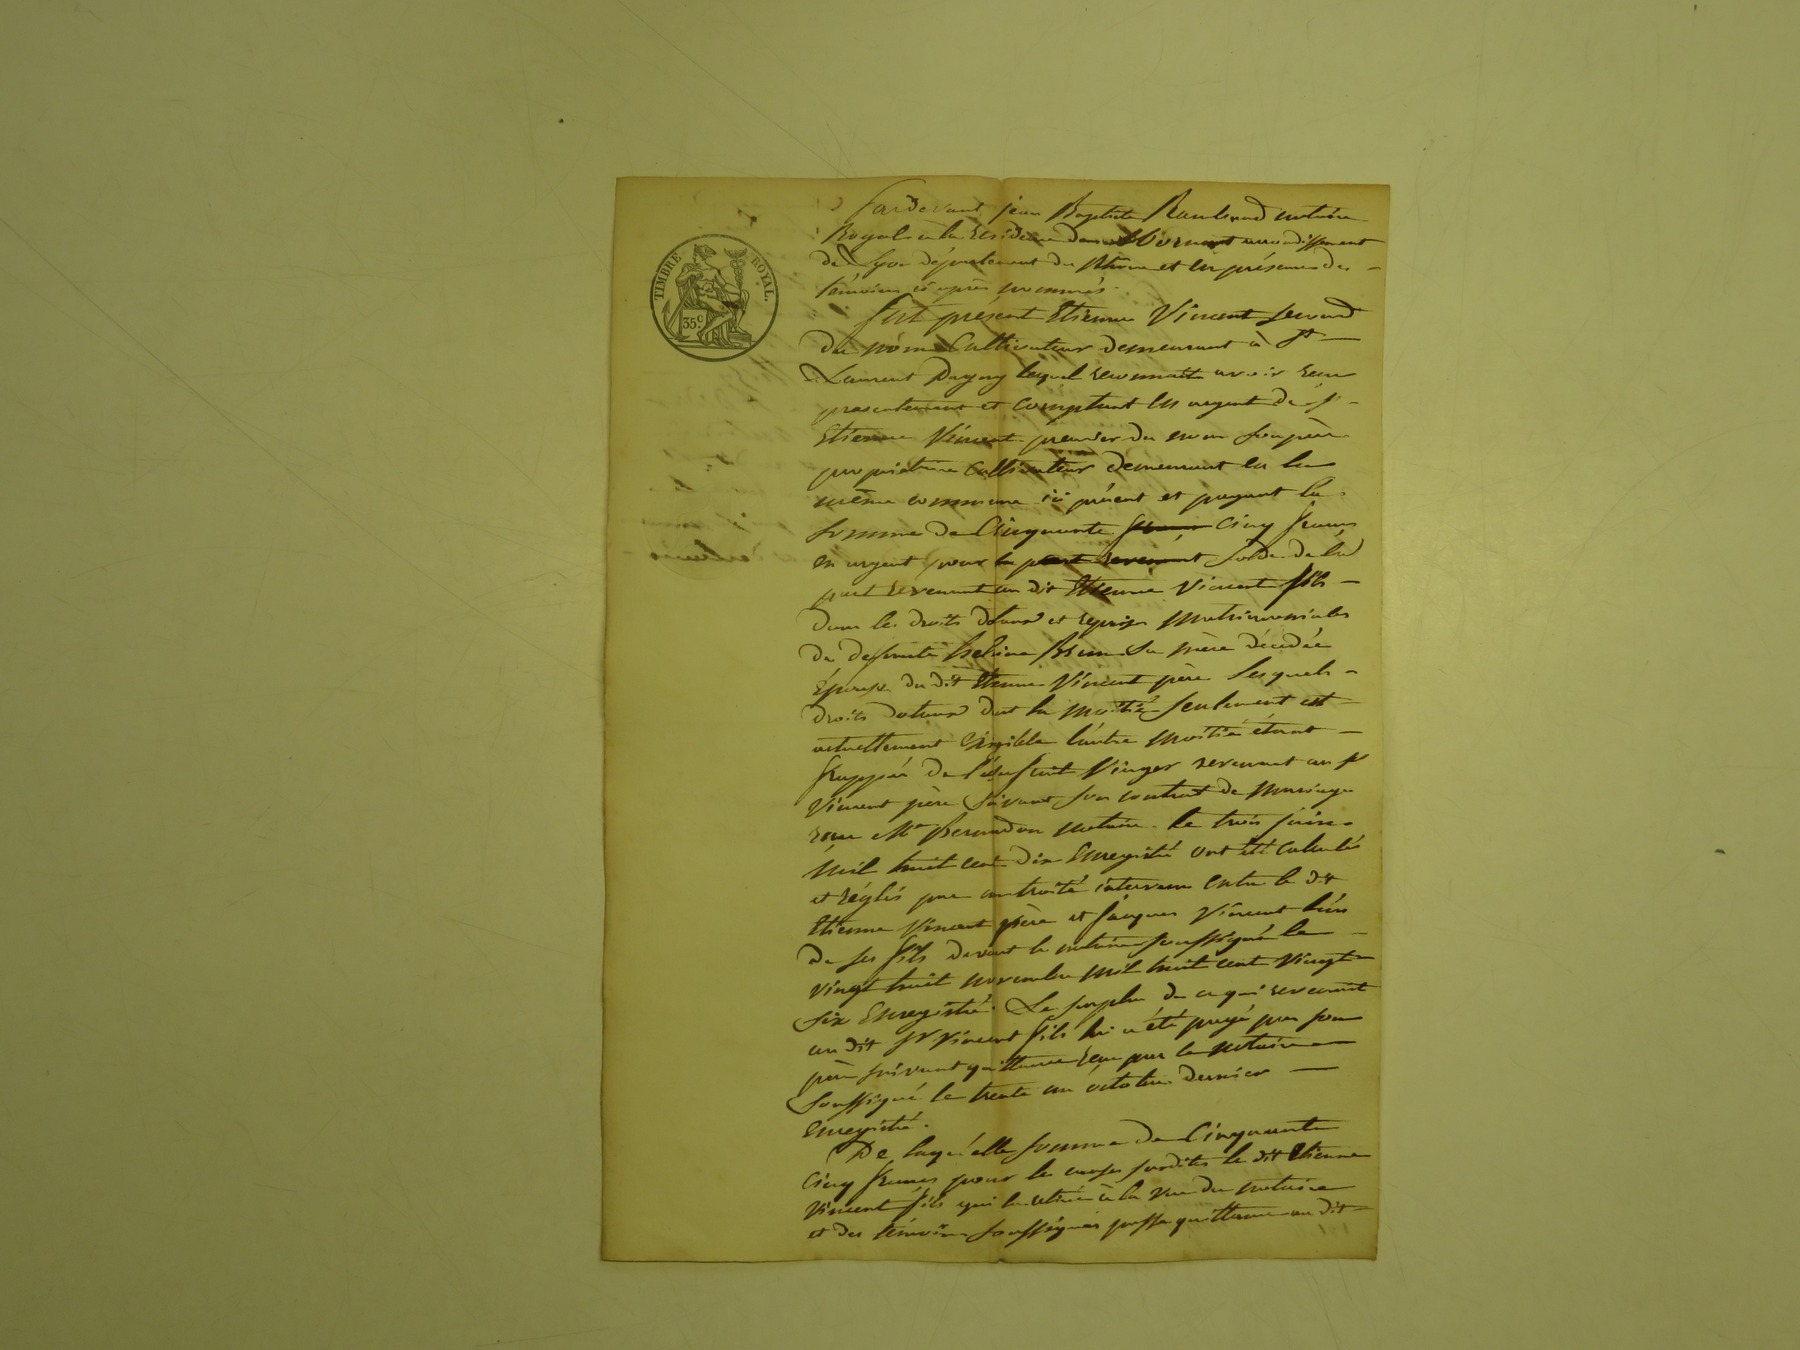 TIMBRE ROYAL.
35 c
Pardevant jean Baptiste notaire
Royal à la Résidence de Mornant arrondissement
de Lyon département du Rhône et en présence des
témoins ci après nommés.
fut présent Etienne Vincent second
du nom Cultivateur demeurant à St
Laurent Dagny lequel reconnait avoir reçu
presentement et comptant en argent de sr
Etienne Vincent premier du nom son père
propriétaire Cultivateur demeurant en la
même commune ici présent et payant la
somme de Cinquante Cinq francs
en argent pour la part revenant solde de la
part revenant au dit Etienne Vincent fils
dans les droits dotaux et reprises Matrimoniales
de defunte Brun sa mère décédée
Epouse du dit Etienne Vincent père lesquels
droits dotaux dont la moitié seulement est
actuellement Exigible l'autre moitié étant
frappée de l'usufruit Viager revenant au sr
Vincent père suivant son contrat de Mariage
reçu Me notaire le trois
Mil huit cent dix Enregistré ont été calculés
et réglés par un traité intervenu Entre le dit
Etienne Vincent père et Jacques Vincent l'un
de ses fils devant le notaire soussigné le
vingt huit novembre mil huit cent vingt
six Enregistré. Le surplus de ce qui revenait
au dit sr Vincent fils lui a été payé par son
père suivant quittance reçue par le notaire
soussigné le trente un octobre dernier
Enregistré.
De laquelle somme de Cinquante
Cinq francs pour les causes susdites le dit Etienne
Vincent fils qui l'a retirée à la vue du notaire
et des témoins soussignés passe quittance au dit